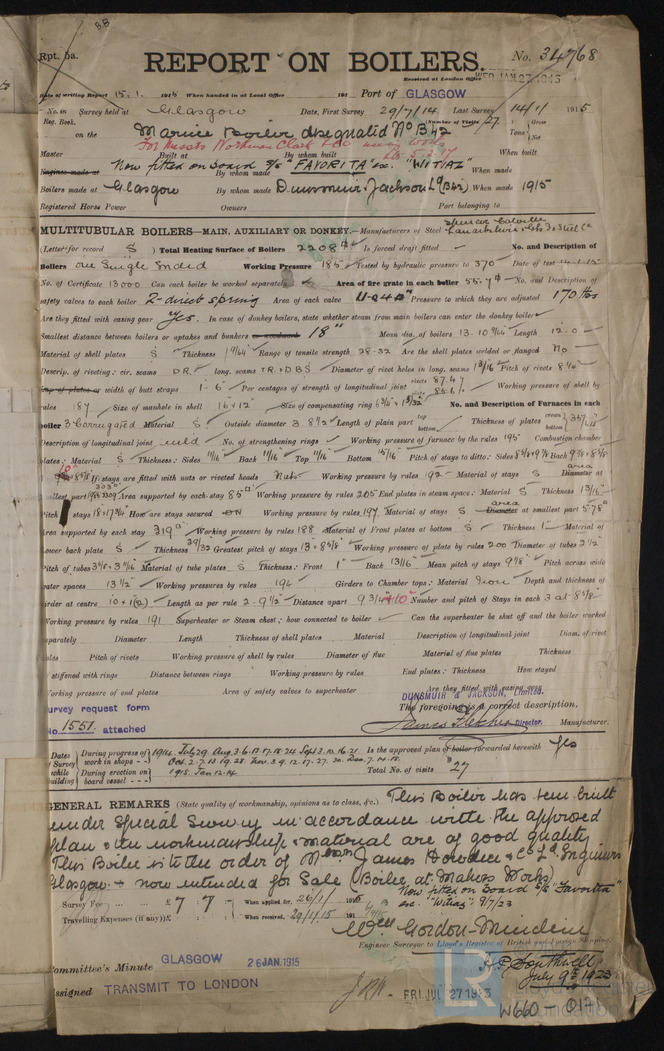 Rpt. 5a.
REPORT ON BOILERS.
No. 34768
Received at London Office WED. JAN. 27 1915
Date of writing Report 15.1. 1915 When handed in at Local Office 191 Port of GLASGOW
No. in Survey held at Glasgow Date, First Survey 29/7/14 Last Survey 14/1/ 1915
Reg. Book. (Number of Visits 27) Gross
on the Marine Boiler designated No B42 Tons Net
Master Built at By whom built When built
Now fitted on board S/S "FAVORITA" "WITIAZ"
Engines made at By whom made When made
Boilers made at Glasgow By whom made Dunsmuir & Jackson Ld (B42) When made 1915
Registered Horse Power Owners Port belonging to
MULTITUBULAR BOILERS—MAIN, AUXILIARY OR DONKEY.—Manufacturers of Steel
(Letter for record S) Total Heating Surface of Boilers 2208 Is forced draft fitted No. and Description of
Boilers one Single Ended Working Pressure 185 Tested by hydraulic pressure to 370 Date of test 14-1-15
No. of Certificate 13000 Can each boiler be worked separately Area of fire grate in each boiler 55.7 No. and Description of
safety valves to each boiler 2-direct spring Area of each valve Pressure to which they are adjusted 170 lbs
Are they fitted with easing gear Yes. In case of donkey boilers, state whether steam from main boilers can enter the donkey boiler
Smallest distance between boilers or uptakes and bunkers or woodwork 18" Mean dia. of boilers Length 12-0
Material of shell plates S Thickness Range of tensile strength 28-32 Are the shell plates welded or flanged No
Descrip. of riveting: cir. seams D.R. long. seams TR.DBS Diameter of rivet holes in long. seams 1 3/16 Pitch of rivets 8 1/4
Lap of plates or width of butt straps 1-6 Per centages of strength of longitudinal joint rivets plate Working pressure of shell by
rules 187 Size of manhole in shell 16 x 12 Size of compensating ring No. and Description of Furnaces in each
boiler 3 Corrugated Material S Outside diameter 3-8 1/2 Length of plain part top bottom Thickness of plates crown bottom
Description of longitudinal joint weld No. of strengthening rings Working pressure of furnace by the rules 195 Combustion chamber
plates: Material S Thickness: Sides 11/16 Back 11/16 Top 11/16 Bottom 15/16 Pitch of stays to ditto: Sides Back
If stays are fitted with nuts or riveted heads Nuts Working pressure by rules 192 Material of stays S area Diameter at
smallest part Area supported by each stay Working pressure by rules 205 End plates in steam space: Material S Thickness 13/16
Pitch of stays How are stays secured Working pressure by rules 197 Material of stays S area Diameter at smallest part 5.78
Area supported by each stay 319 Working pressure by rules 188 Material of Front plates at bottom S Thickness 1 Material of
Lower back plate S Thickness 29/32 Greatest pitch of stays Working pressure of plate by rules 200 Diameter of tubes 2 1/2
Pitch of tubes Material of tube plates S Thickness: Front 1" Back 13/16 Mean pitch of stays Pitch across wide
water spaces 13 1/2 Working pressures by rules 194 Girders to Chamber tops: Material Iron Depth and thickness of
girder at centre 10 x 1(2) Length as per rule 2-9 1/2 Distance apart 9 3/4 Number and pitch of Stays in each 3 at
Working pressure by rules 191 Superheater or Steam chest; how connected to boiler Can the superheater be shut off and the boiler worked
separately Diameter Length Thickness of shell plates Material Description of longitudinal joint Diam. of rivet
holes Pitch of rivets Working pressure of shell by rules Diameter of flue Material of flue plates Thickness
If stiffened with rings Distance between rings Working pressure by rules End plates: Thickness How stayed
Working pressure of end plates Area of safety valves to superheater Are they fitted with easing gear
DUNSMUIR & JACKSON, Limited.
Survey request form The foregoing is a correct description,
No. 1551 attached James Fletcher Director. Manufacturer.
Dates of Survey while building
During progress of work in shops - - 1914. July 29. Aug. 3. 6. 13. 17. 18. 24. Sept 3. 10. 16. 21. Is the approved plan of boiler forwarded herewith Yes
Oct. 2. 7. 13. 19. 28. Nov. 3. 9. 12. 17. 27. 30. Dec. 7. 14. 18.
During erection on board vessel - - - 1915. Jan 12. 14 Total No. of visits 27
GENERAL REMARKS (State quality of workmanship, opinions as to class, &c.) This Boiler has been built
under Special Survey in accordance with the approved
plan & the workmanship & material are of good quality
This Boiler is to the order of Messrs James Howden & Co Ld Engineers
Glasgow & now intended for Sale (Boiler at Makers Works)
Now fitted on board S/S "Favorita"
ex. "Witiaz" 9/7/23
Survey Fee ... ... £ 7 : 7 : - When applied for, 26/1/ 1915
Travelling Expenses (if any) £ : : When received, 29/1/15 191
Wm Gordon-
Engineer Surveyor to Lloyd's Register of British and Foreign Shipping.
July 9th 1923
Committee's Minute GLASGOW 26 JAN. 1915
Assigned TRANSMIT TO LONDON
FRI. JUL 27 1923
W660-0171